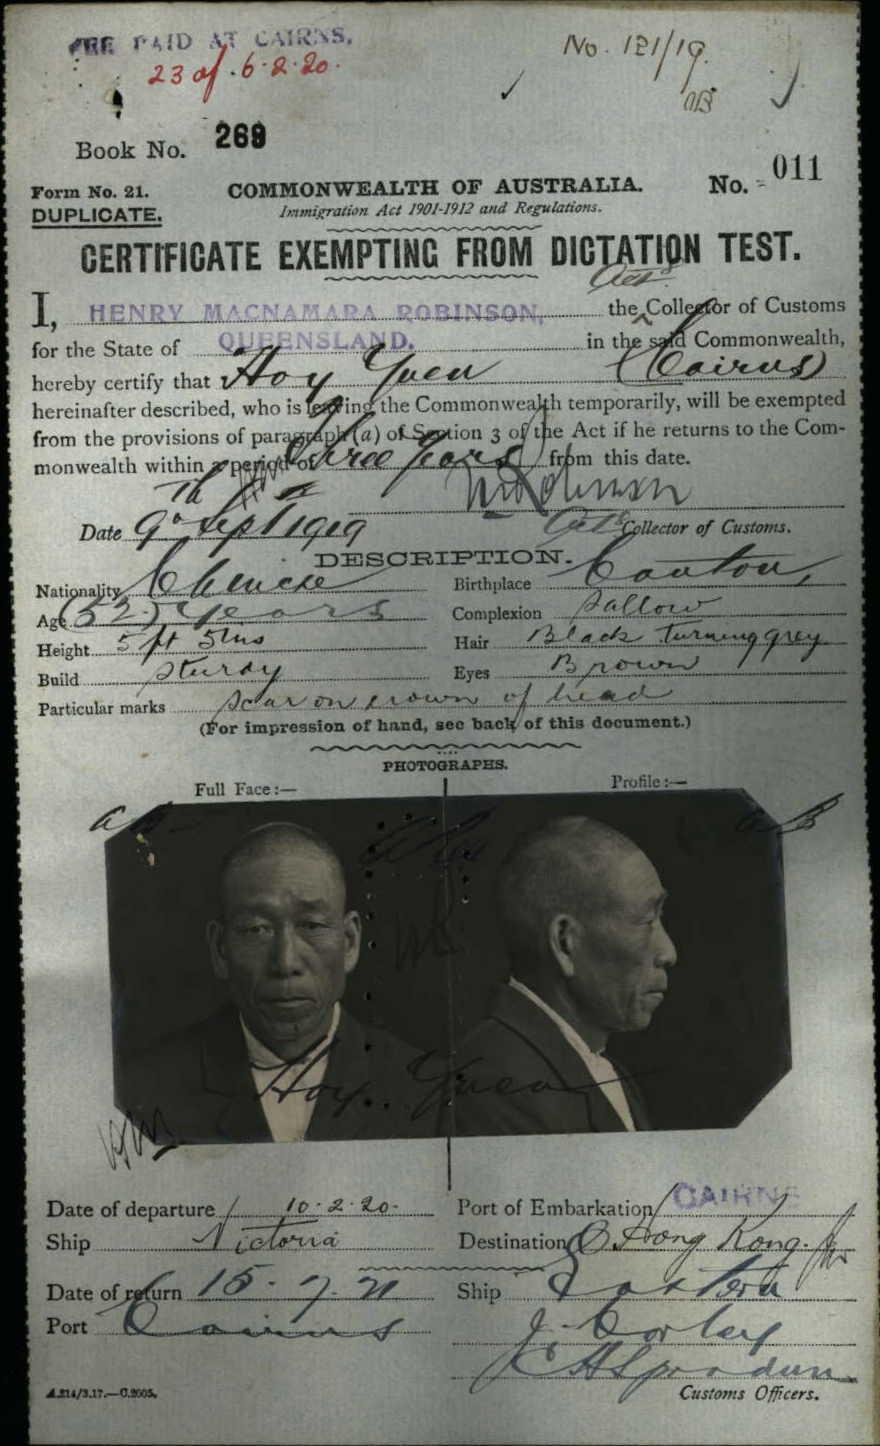 FEE PAID AT CAIRNS.
23 of 6.2.20.
No. 121/19.
aB
Book No. 269
Form No. 21.
DUPLICATE.
COMMONWEALTH OF AUSTRALIA.
Immigration Act 1901-1912 and Regulations.
No. 011
CERTIFICATE EXEMPTING FROM DICTATION TEST.
I, HENRY MACNAMARA ROBINSON, the Actg. Collector of Customs
for the State of QUEENSLAND. in the said Commonwealth,
hereby certify that Hoy Yuen (Cairns)
hereinafter described, who is leaving the Commonwealth temporarily, will be exempted
from the provisions of paragraph (a) of Section 3 of the Act if he returns to the Com-
monwealth within a period of Three Years from this date.
Date 9th Sept 1919
Collector of Customs.
DESCRIPTION.
Nationality Chinese
Birthplace Canton,
Age (52) years
Complexion Sallow
Height 5 ft 5 ins
Hair Black turning grey
Build Sturdy
Eyes Brown
Particular marks Scar on crown of head
(For impression of hand, see back of this document.)
PHOTOGRAPHS.
Full Face :—
Profile :—
aB
Hoy Yuen
Date of departure 10.2.20.
Port of Embarkation CAIRNS
Ship Victoria
Destination Hong Kong.
Date of return 15.7.21
Ship Eastern
Port Cairns
Customs Officers.
A.214/3.17.—C.2605.